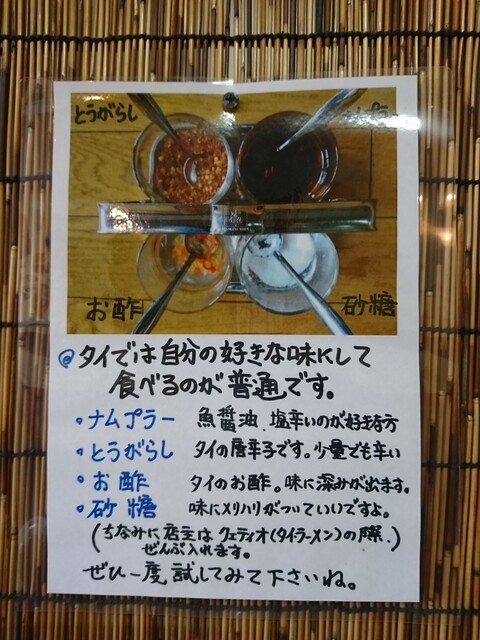 とうがらし
お酢
砂糖
タイでは自分の好きな味にして
食べるのが普通です。
・ナムプラー 魚醤油、塩辛いのが好きな方
・とうがらし タイの唐辛子です。少量でも辛い
・お酢 タイのお酢。味に深みが出ます。
・砂糖 味にメリハリがついていいですよ。
(ちなみに店主はクェティオ(タイラーメン)の際、)
ぜんぶ入れます。
ぜひ一度試してみて下さいね。